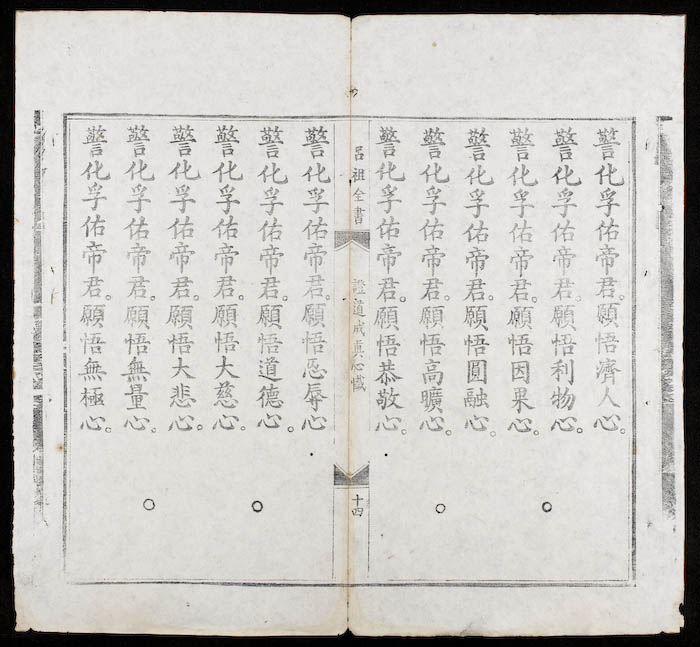 警化孚佑帝君。願悟濟人心。
警化孚佑帝君。願悟利物心。
警化孚佑帝君。願悟因果心。
警化孚佑帝君。願悟圓融心。
警化孚佑帝君。願悟高曠心。
警化孚佑帝君。願悟恭敬心。
呂祖全書
證道成眞心懺
十四
警化孚佑帝君。願悟忍辱心。
警化孚佑帝君。願悟道德心。
警化孚佑帝君。願悟大慈心。
警化孚佑帝君。願悟大悲心。
警化孚佑帝君。願悟無量心。
警化孚佑帝君。願悟無極心。